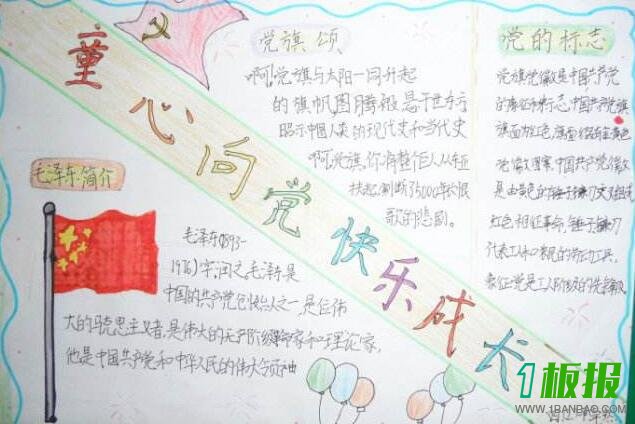 童心向党快乐成长
党旗颂
啊,党旗与太阳一同升起
的旗帜图腾般悬于世
昭示中国人类的现代史和当代史
啊党旗,你将整个人从
歌的悲剧。
党的标志
党旗党徽是中国共产党
的象征和标志,中国共产党旗
旗面为红色
党徽图案,中国共产党徽
红色相征革命,锤子镰刀
代表工人和农民的劳动工具,
象征党是工人阶级的先锋队
毛泽东简介
毛泽东(1893-
1976)字润之毛泽东是
中国的共产党创始人之一,是位伟
大的马克思主义者,是伟大的无产阶级 家和理论家,
他是中国共产党和中华人民的伟大领袖
1板报
WWW.1BANBAO.COM